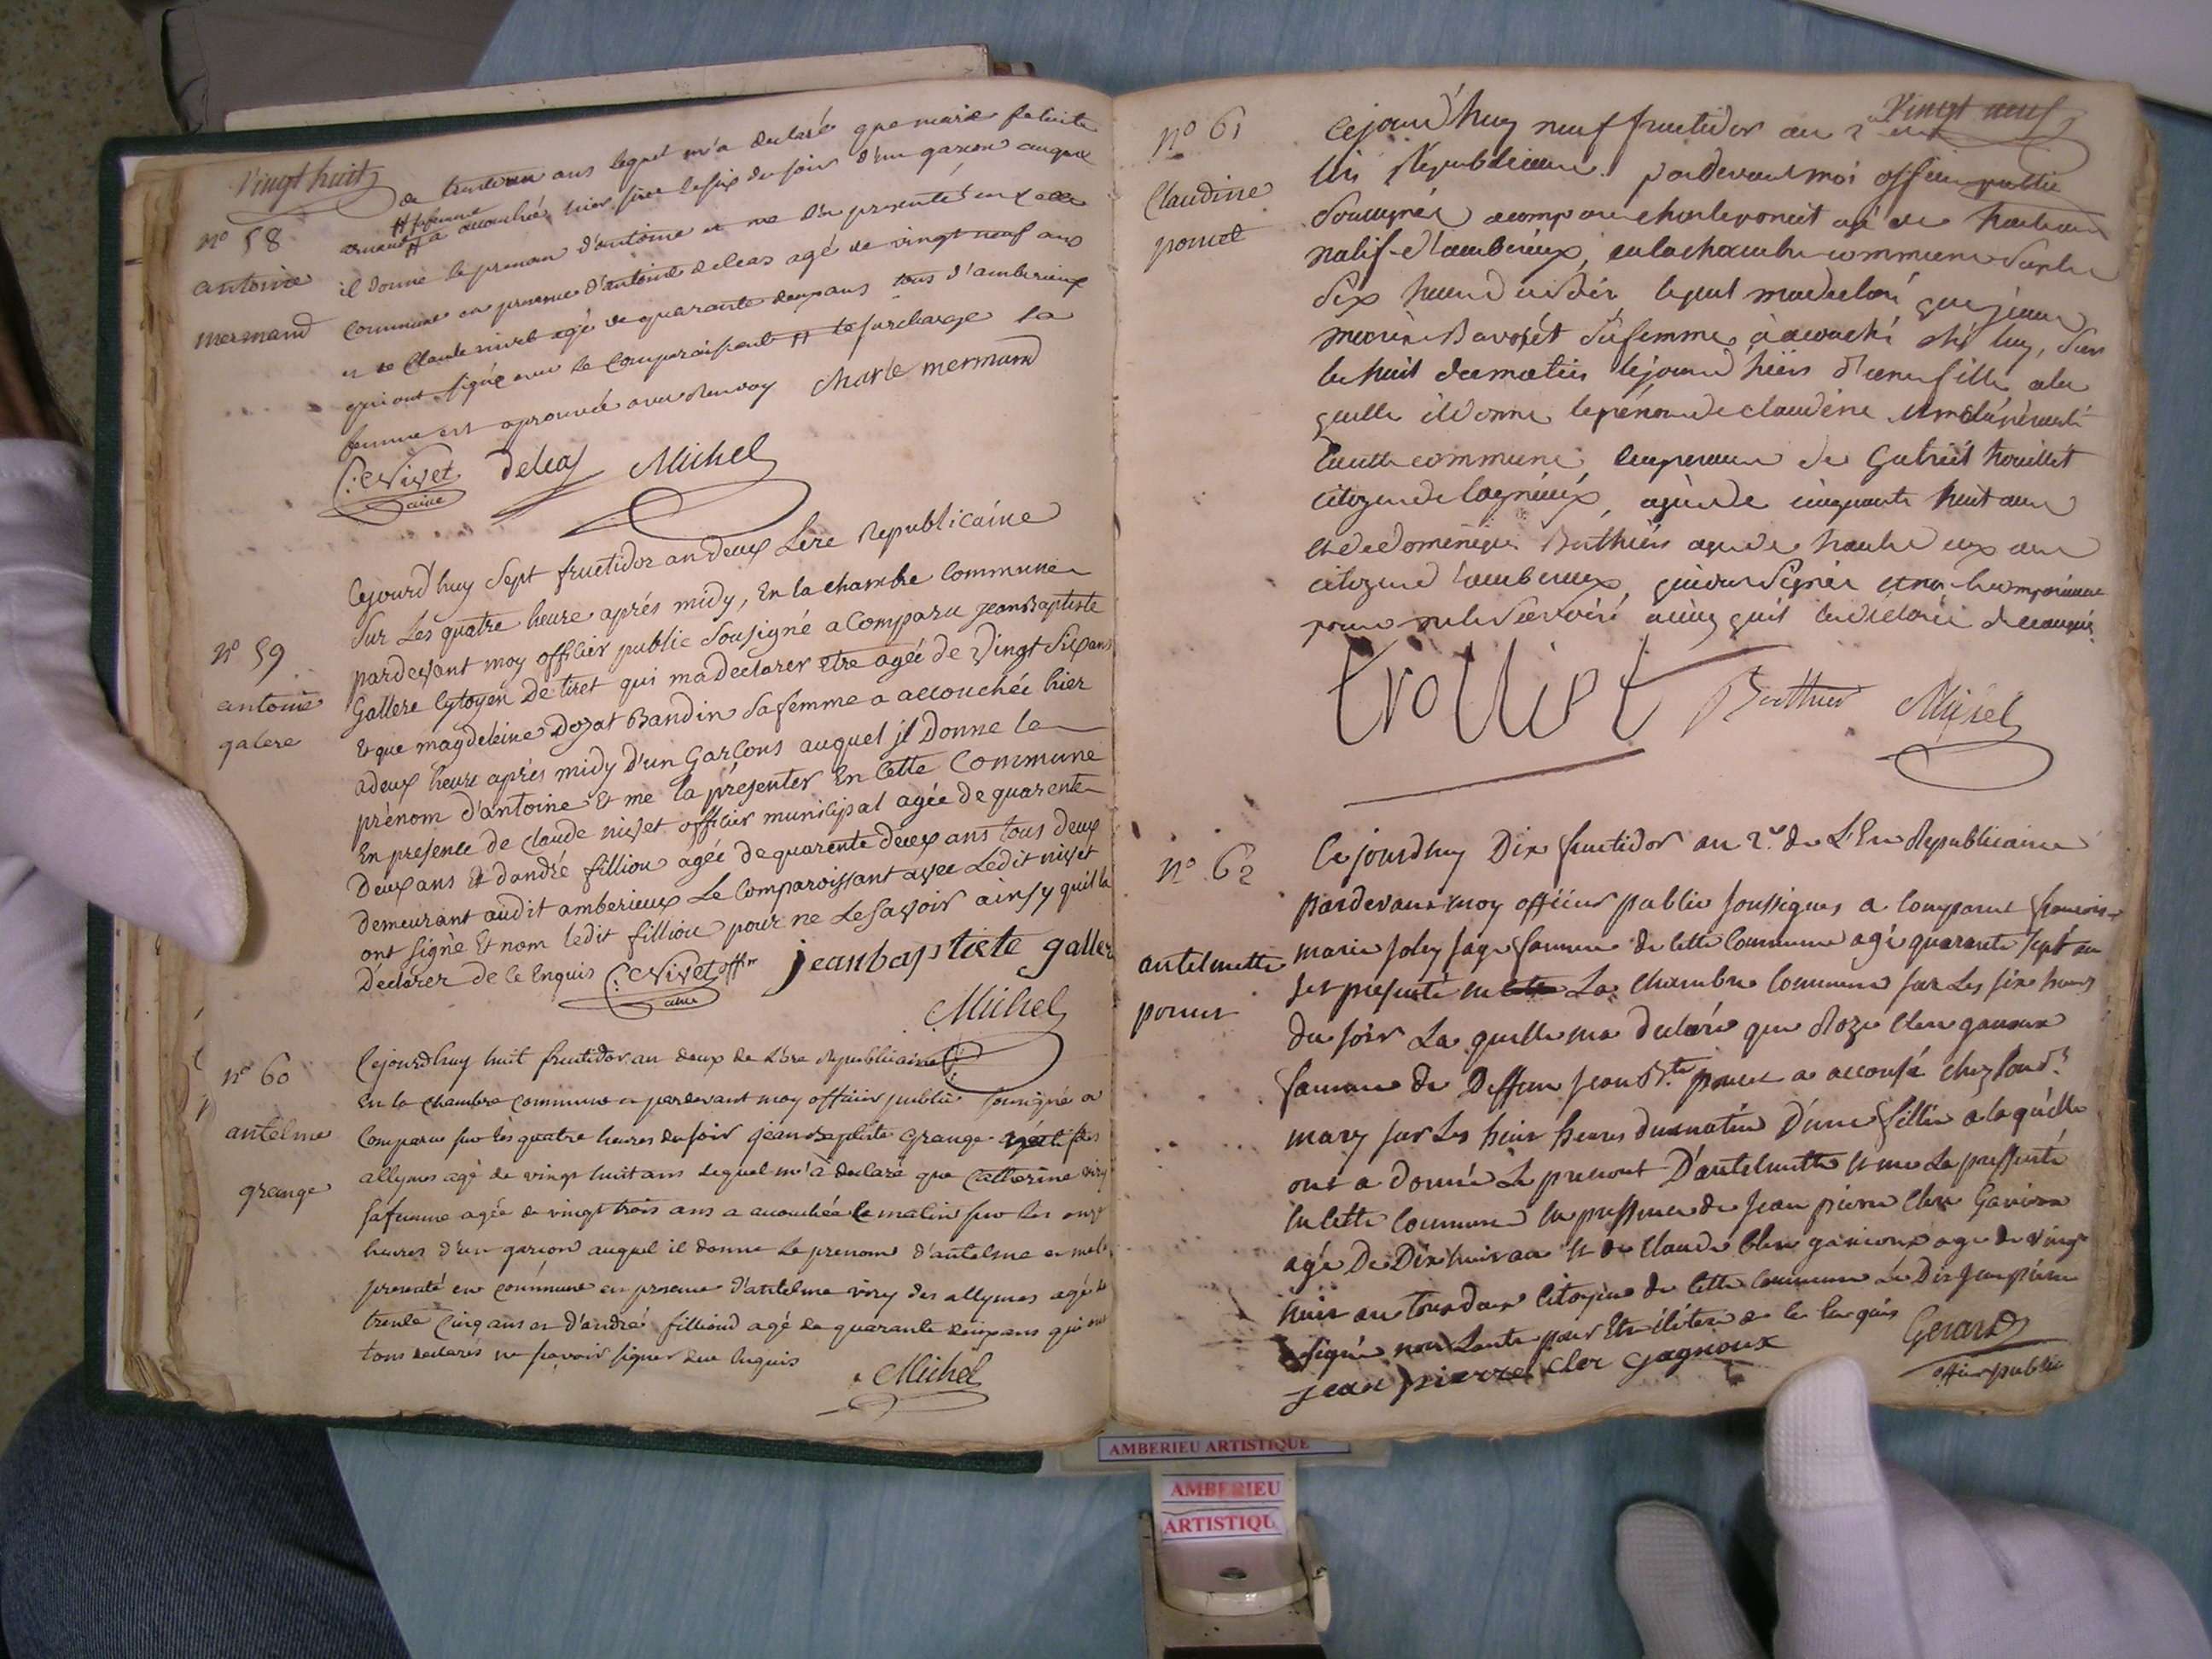 Vingt huit
de trente un ans lequel m'a declaré que marie felicite
femme
a accouchée hier sur le six du soir d'un garcon auquel
n° 58
antoine
mermand
il donne le prenom d'antoine et me l'a presenté en cette
commune en presence d'antoine deleas agé de vingt neuf ans
et de Claude nivet agé de quarante deux ans tous d'amberieux
qui ont signé avec le comparaissant # la surcharge la
femme est aprouvée avec Renvoy Charle mermand
C: Nivet deleas Michel
ainé
n° 59
antoine
galere
Cejourd'huy Sept fructidor an deux Lere Republicaine
Sur Les quatre heure aprés midy, En la chambre Commune
pardevant moy officier public Sousigné a Comparu jean Baptiste
Gallere Cytoyen De tiret qui ma declarer etre agée de Vingt Six ans
Et que magdeleine Dozat Bandin Sa femme a accouchée hier
a deux heure aprés midy D'un Garcons auquel jl Donne le
prénom d'antoine Et me la présenter En Cette Commune
En presence de Claude nivet officier municipal agée de quarente
Deux ans Et dandré filliou agée de quarente deux ans tous deux
demeurant audit amberieux Le Comparoissant avec Ledit nivet
ont signé Et nom ledit filliou pour ne Le Savoir ainsy quil la
Déclarer de ce Enquis C: Nivet offier jeanbaptiste galler
ainé
Michel
n° 60
antelme
grange
Cejourdhuy huit fructidor an deux de L'ere republicaine
En la chambre commune et pardevant moy officier public Sousigné a
Comparu sur les quatre heures du soir jean Baptiste grange des
allymes agé de vingt huit ans Lequel m'a déclaré que Catherine viry
sa femme agée de vingt trois ans a accouchée le matin sur les onze
heures d'un garçon auquel il donne Le prenom d'antelme et me l'a
presenté en commune en presence d'antelme viry des allymes agé de
trente Cinq ans et d'andré filliond agé de quarante deux ans qui ont
tous declarés ne savoir signer de ce Enquis
Michel
Vingt neuf
n° 61
Claudine
poncet
Cejourd'huy neuf fructidor an 2
Républicaine pardevant moi officier public
Soussigné a comparu charle poncet agé de
natif d'amberieux, en la chambre commune Sur les
Six heure du soir lequel ma declaré que jeanne
marie Bavozet Sa femme à accouché chez luy, Sur
les huit du matin le jour d'hier d'une fille a la
quelle il donne le prénom de claudine et me la présenté
en cette commune en presence de Gabriel trouillet
citoyen de lagnieux, agée de cinquante huit ans
et de dominique Berthier agé de trente deux ans
citoyen d'amberieux, qui ont Signée et non le comparaissant
pour ne le Savoir ainsy quil la déclaré de ce enquis.
trolliet Berthier Michel
n° 62
antelmette
poncet
Cejourdhuy Dix fructidor an 2.e de L'Ere Republicaine
pardevant moy officier public soussignes a comparut francois
marie joly sage femme de cette commune agé quarante sept an
set presenté en La Chambre Commune sur Les six heures
du soir La quelle ma declaré que Roze Cler ganoux
famme de Deffun jean B.te poncet a accouché chez son d.t
mary sur Les huit heures du matin D'une fillie a la quelle
ont a donné Le prenont D'antelmette et me La presenté
En cette commune En pressence de jean pierre Cler Ganioux
agé De Dix huit an Et de Claude Cler ganioux age de vingt
huit an tous deux Citoyens de cette commune Le Dit jean pierre
a signé non Lautre pour Etre iliteré de ce Enquis
jean pierre Cler gagnoux Gerard
officier public
AMBERIEU ARTISTIQUE
AMBERIEU
ARTISTIQU